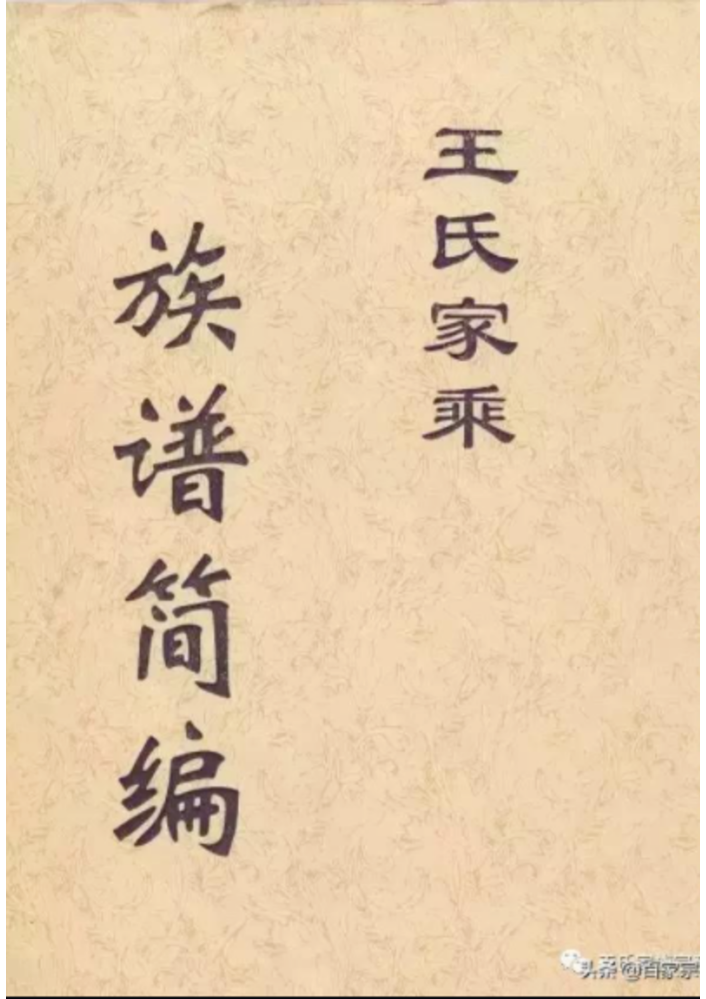 王氏家乘
族谱简编
头条 @百家宗